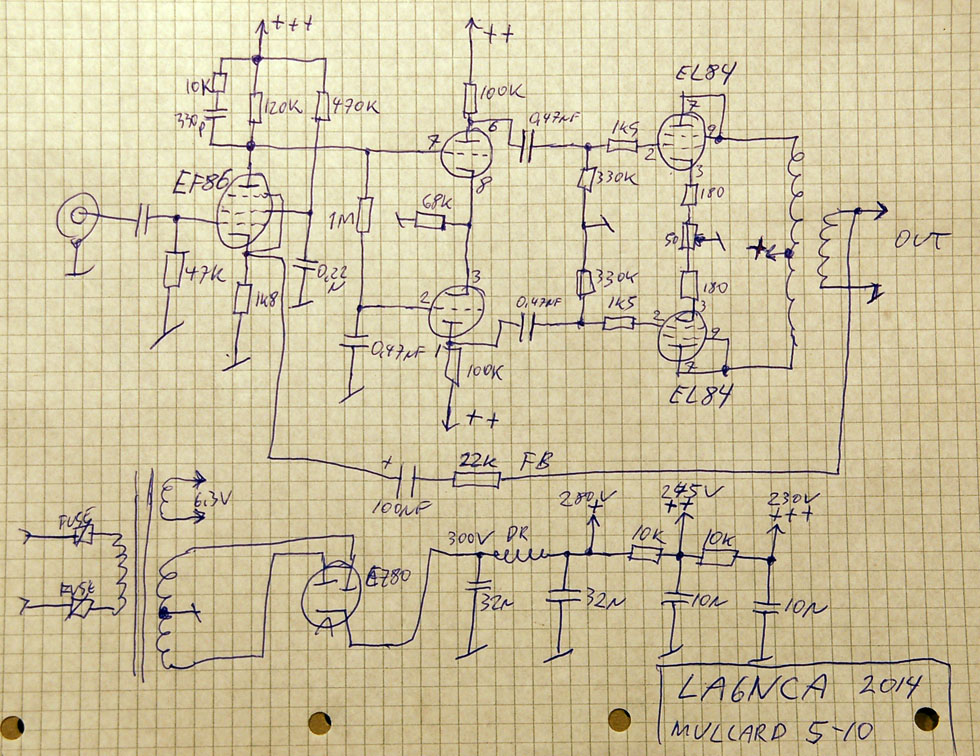 +++
++
10K
330p
120K
470K
100K
EL84
7
6
0,47nF
1K5
2
7
9
3
EF86
8
330K
180
1M
68K
50
+
OUT
47K
1K8
0,22
N
3
2
330K
0,47NF
1K5
180
2
3
9
0,47NF
1
100K
7
EL84
++
+
22K
FB
100NF
6,3V
280V
+
245V
++
230V
+++
FUSE
FUSE
EZ80
300V
DR
10K
10K
32N
32N
10N
10N
LA6NCA 2014
MULLARD 5-10